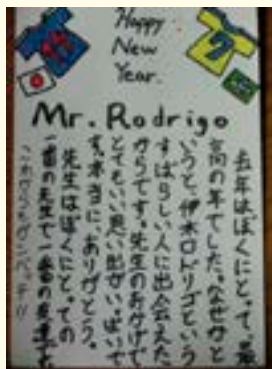 Happy
New
Year.
Mr. Rodrigo
去年はぼくにとって、最
高の年でした。なぜかと
いうと、伊木ロドリゴという
すばらしい人に出会えた
からです。先生のおかげで
とてもいい思い出がいっぱいで
す。本当に、ありがとう。
先生はぼくにとっての
一番の先生で一番の友達です
これからもガンバッテ!!